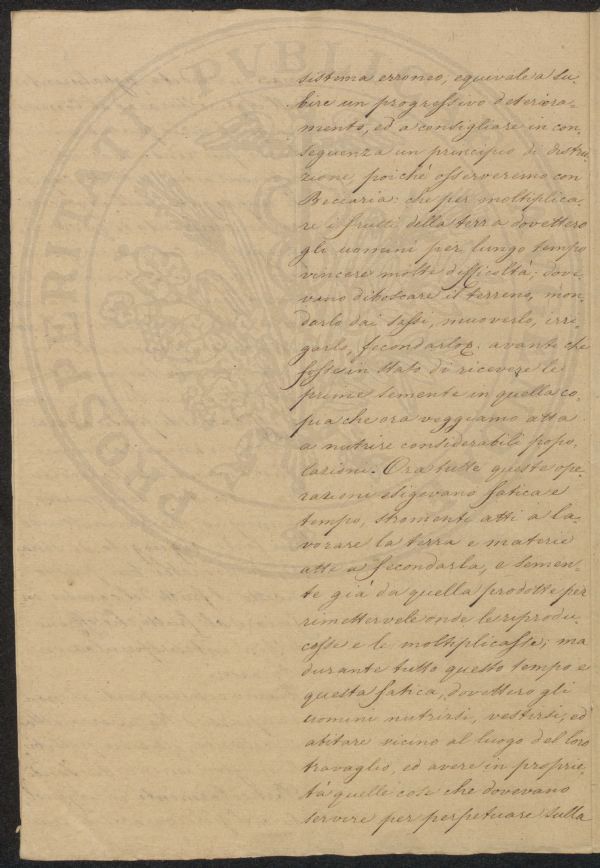 PROSPERITATI PUBLICAE
sistema erroneo, equivale a su-
bire un progressivo deteriora-
mento, ed a consigliare in con-
seguenza un principio di distru-
zione, poiché osserveremo con
Beccaria: che per moltiplica-
re i frutti della terra dovettero
gli uomini per lungo tempo
vincere molte difficoltà; dove-
vano diboscare il terreno, mon-
darlo dai sassi, muoverlo, irri-
garlo, fecondarlo avanti che
fosse in stato di ricevere le
prime semente in quella co-
pia che ora veggiamo atta
a nutrire considerabili popo-
lazioni. Ora tutte queste ope-
razioni esigevano fatica e
tempo, stromenti atti a la-
vorare la terra e materie
atte a fecondarla, e semen-
te già da quella prodotte per
rimettervele onde le riprodu-
cesse e le moltiplicasse; ma
durante tutto questo tempo e
questa fatica, dovettero gli
uomini nutrirsi, vestirsi, ed
abitare vicino al luogo del loro
travaglio, ed avere in proprie-
tà quelle cose che dovevano
servire per perpetuare sulla